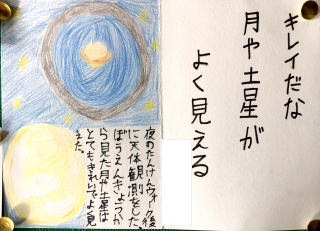 キレイだな
月や土星が
よく見える
夜のたんけんウォーク後
に天体観測をした。
ぼうえんきょうか
ら見た月や土星は
とてもきれいでよく見
えた。